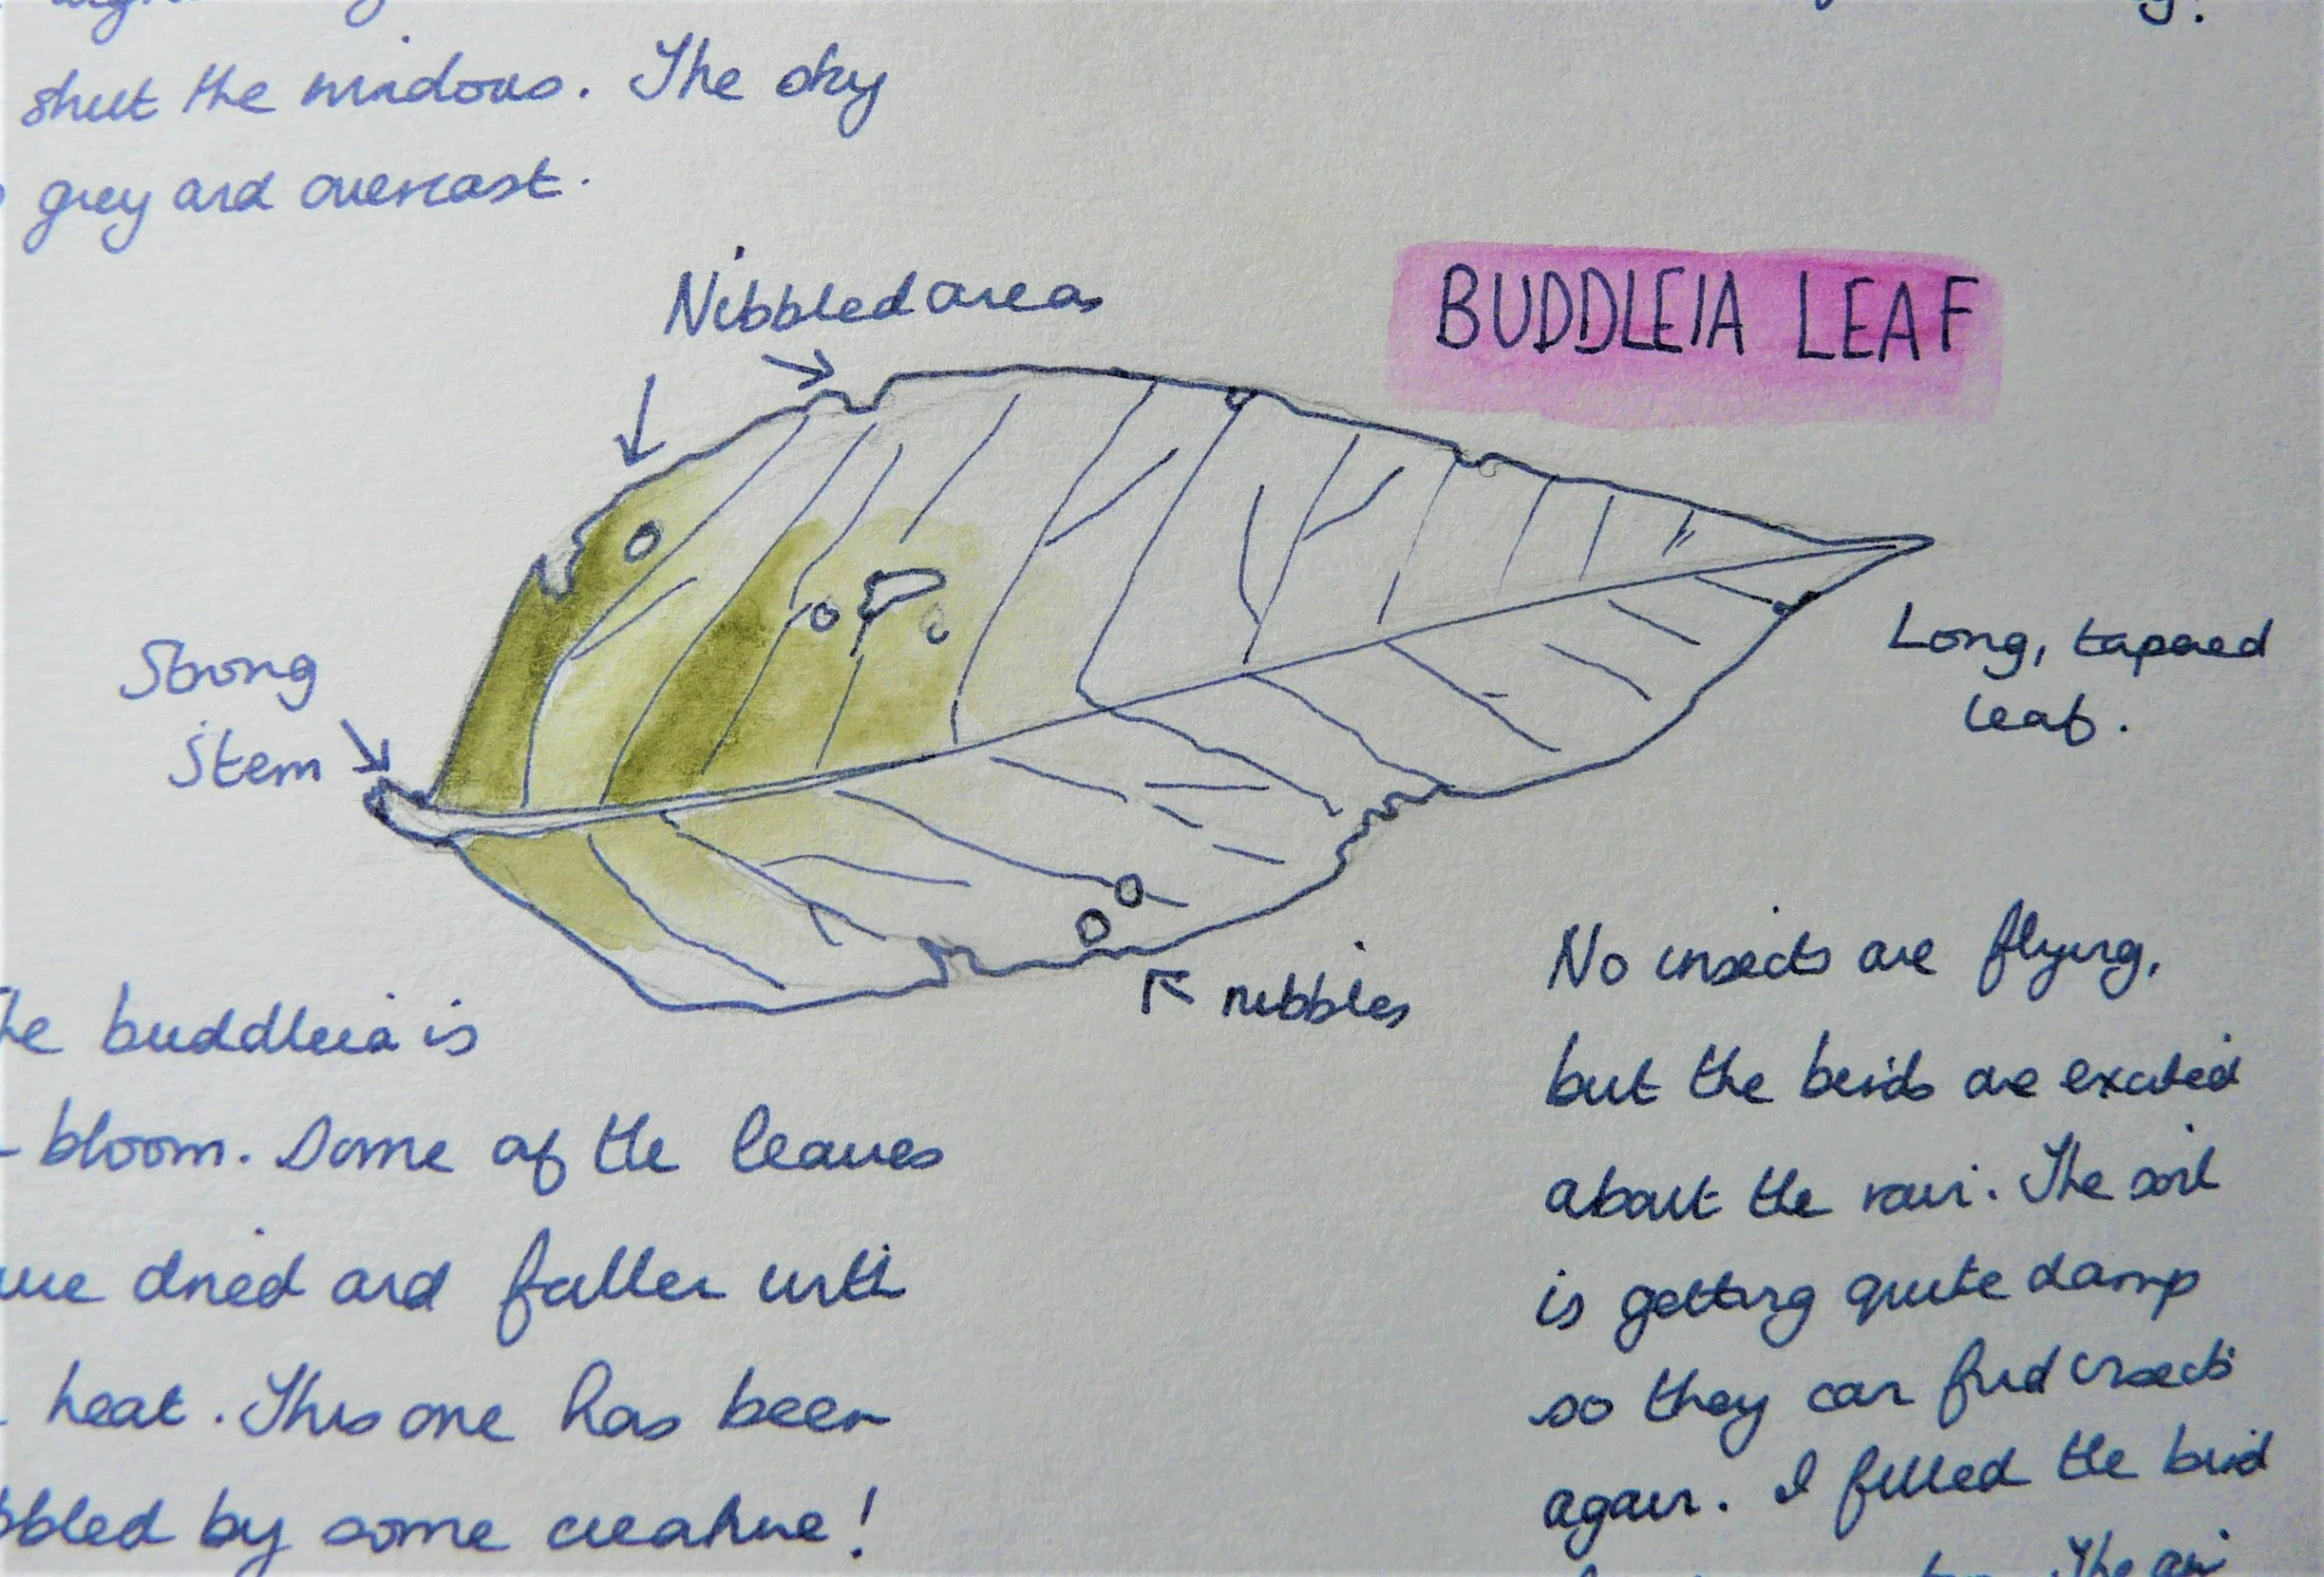 shut the windows. The sky
grey and overcast.
Nibbled areas
BUDDLEIA LEAF
Strong
Stem
Long, tapered
leaf.
nibbles
buddleia is
bloom. Some of the leaves
dried and fallen with
heat. This one has been
by some creature!
No insects are flying,
but the birds are excited
about the rain. The soil
is getting quite damp
so they can find insects
again. I filled the bird
The air